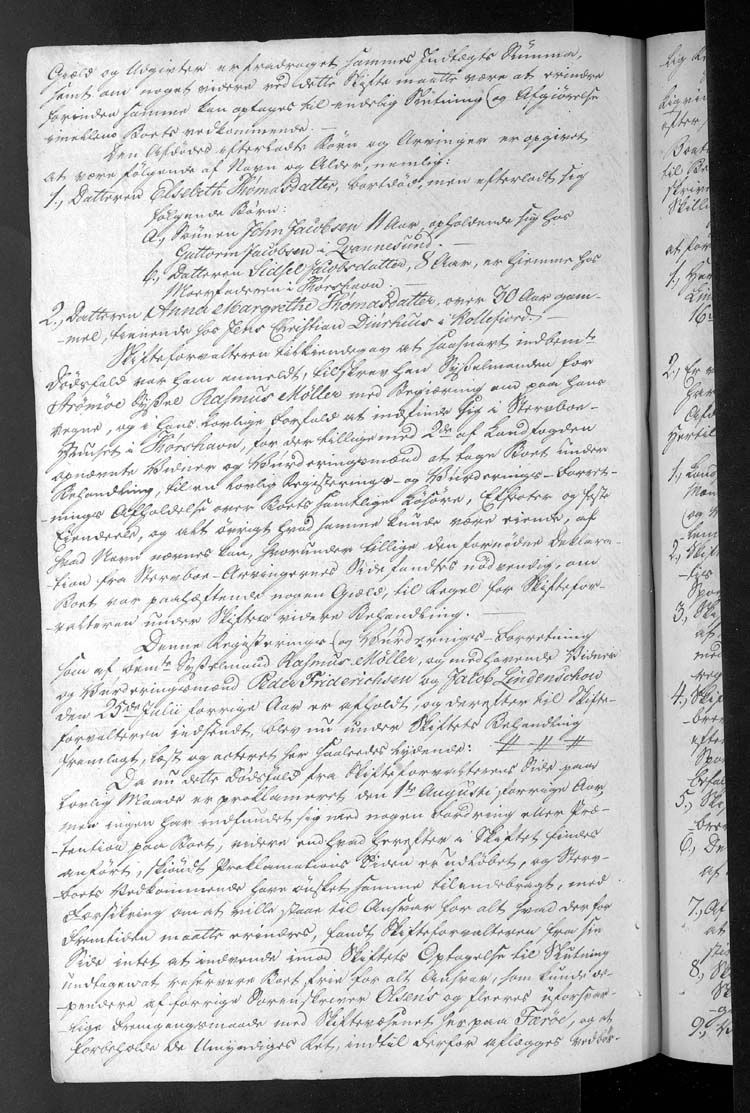 Gjæld og Udgivter er fradraget sammes Indtægts Summa,
samt om noget videre ved dette Skifte maatte være at erindre
forinden samme kan optages til endelig Slutning og Afgiørelse
imellem Boets vedkommende.
Den Afdødes efterladte Børn og Arvinger er opgivet
at være følgende af Navn og Alder, nemlig:
1., Datteren Elsebeth Thomasdatter, bortdød, men efterladt sig
følgende Børn:
a., Sønnen John Jacobsen 11 Aar, opholdende sig hos
Guttorm Jacobsen i Qvannesund.
b., Datteren Sidsel Jacobsdatter, 8 Aar, er hiemme hos
Morfaderen i Thorshavn.
2., Datteren Anna Margrethe Thomasdatter, over 30 Aar gam-
mel, tienende hos Jens Christian Diurhuus i Kollefiord.
Skifteforvalteren tilkiendegav at saasnart indbemt.
Dødsfald var ham anmeldt, tilskrev han Sysselmanden for
Strömöe Syssel Rasmus Möller med Begiæring om paa hans
vegne, og i hans lovlige Forfald at indfinde sig i Sterboe-
Huuset i Thorshavn, for der tillige med 2de af Landfogden
opnævnte Vidner og Vurderingsmænd at tage Boet under
Behandling, til en lovlig Registerings- og Vurderings-Forret-
nings Afholdelse over Boets samtlige Løsøre, Effecter og faste
Eiendele, og alt øvrigt hvad samme kunde være eiende, af
hvad Navn nævnes kan, hvorunder tillige den fornødne Deklara-
tion fra Sterboe-Arvingernes Side fandtes nødvendig, om
Boet var paahæftende nogen Gjæld, til Regel for Skiftefor-
valteren under Skiftets videre Behandling.
Denne Registerings og Vurderings-Forretning
som af bemte. Sysselmand Rasmus Möller, og medhavende Vidner
og Vurderingsmænd Peder Friderichsen og Jacob Lindenschou
den 25de Julii forrige Aar er afholdt, og derefter til Skifte-
forvalteren indsendt, blev nu under Skiftets Behandling
fremlagt, læst og acteret her saaledes lydende: # # #
Da nu dette Dødsfald fra Skifteforvalterens Side paa
lovlig Maade er proklameret den 1te Augusti forrige Aar
men ingen har indfundet sig med nogen Fordring eller Præ-
tention paa Boet, videre end hvad herefter i Skiftet findes
anført, skiøndt Proklamations Tiden er udløbet, og Sterv-
boets Vedkommende have ønsket samme tilendebragt, med
Forsikring om at ville staae til Ansvar for alt hvad derfor
Fremtiden maatte erindres, fandt Skifteforvalteren fra sin
Side intet at indvende imod Skiftets Optagelse til Slutning
undtagen at reservere Boet frie for alt Ansvar, som kunde de-
pendere af forrige Sorenskriver Olsens og fleeres uforsvar-
lige Fremgangsmaade med Skiftevæsenet her paa Færöe, og at
forbeholde de Umyndiges Ret, indtil derfor aflægges vedbør-